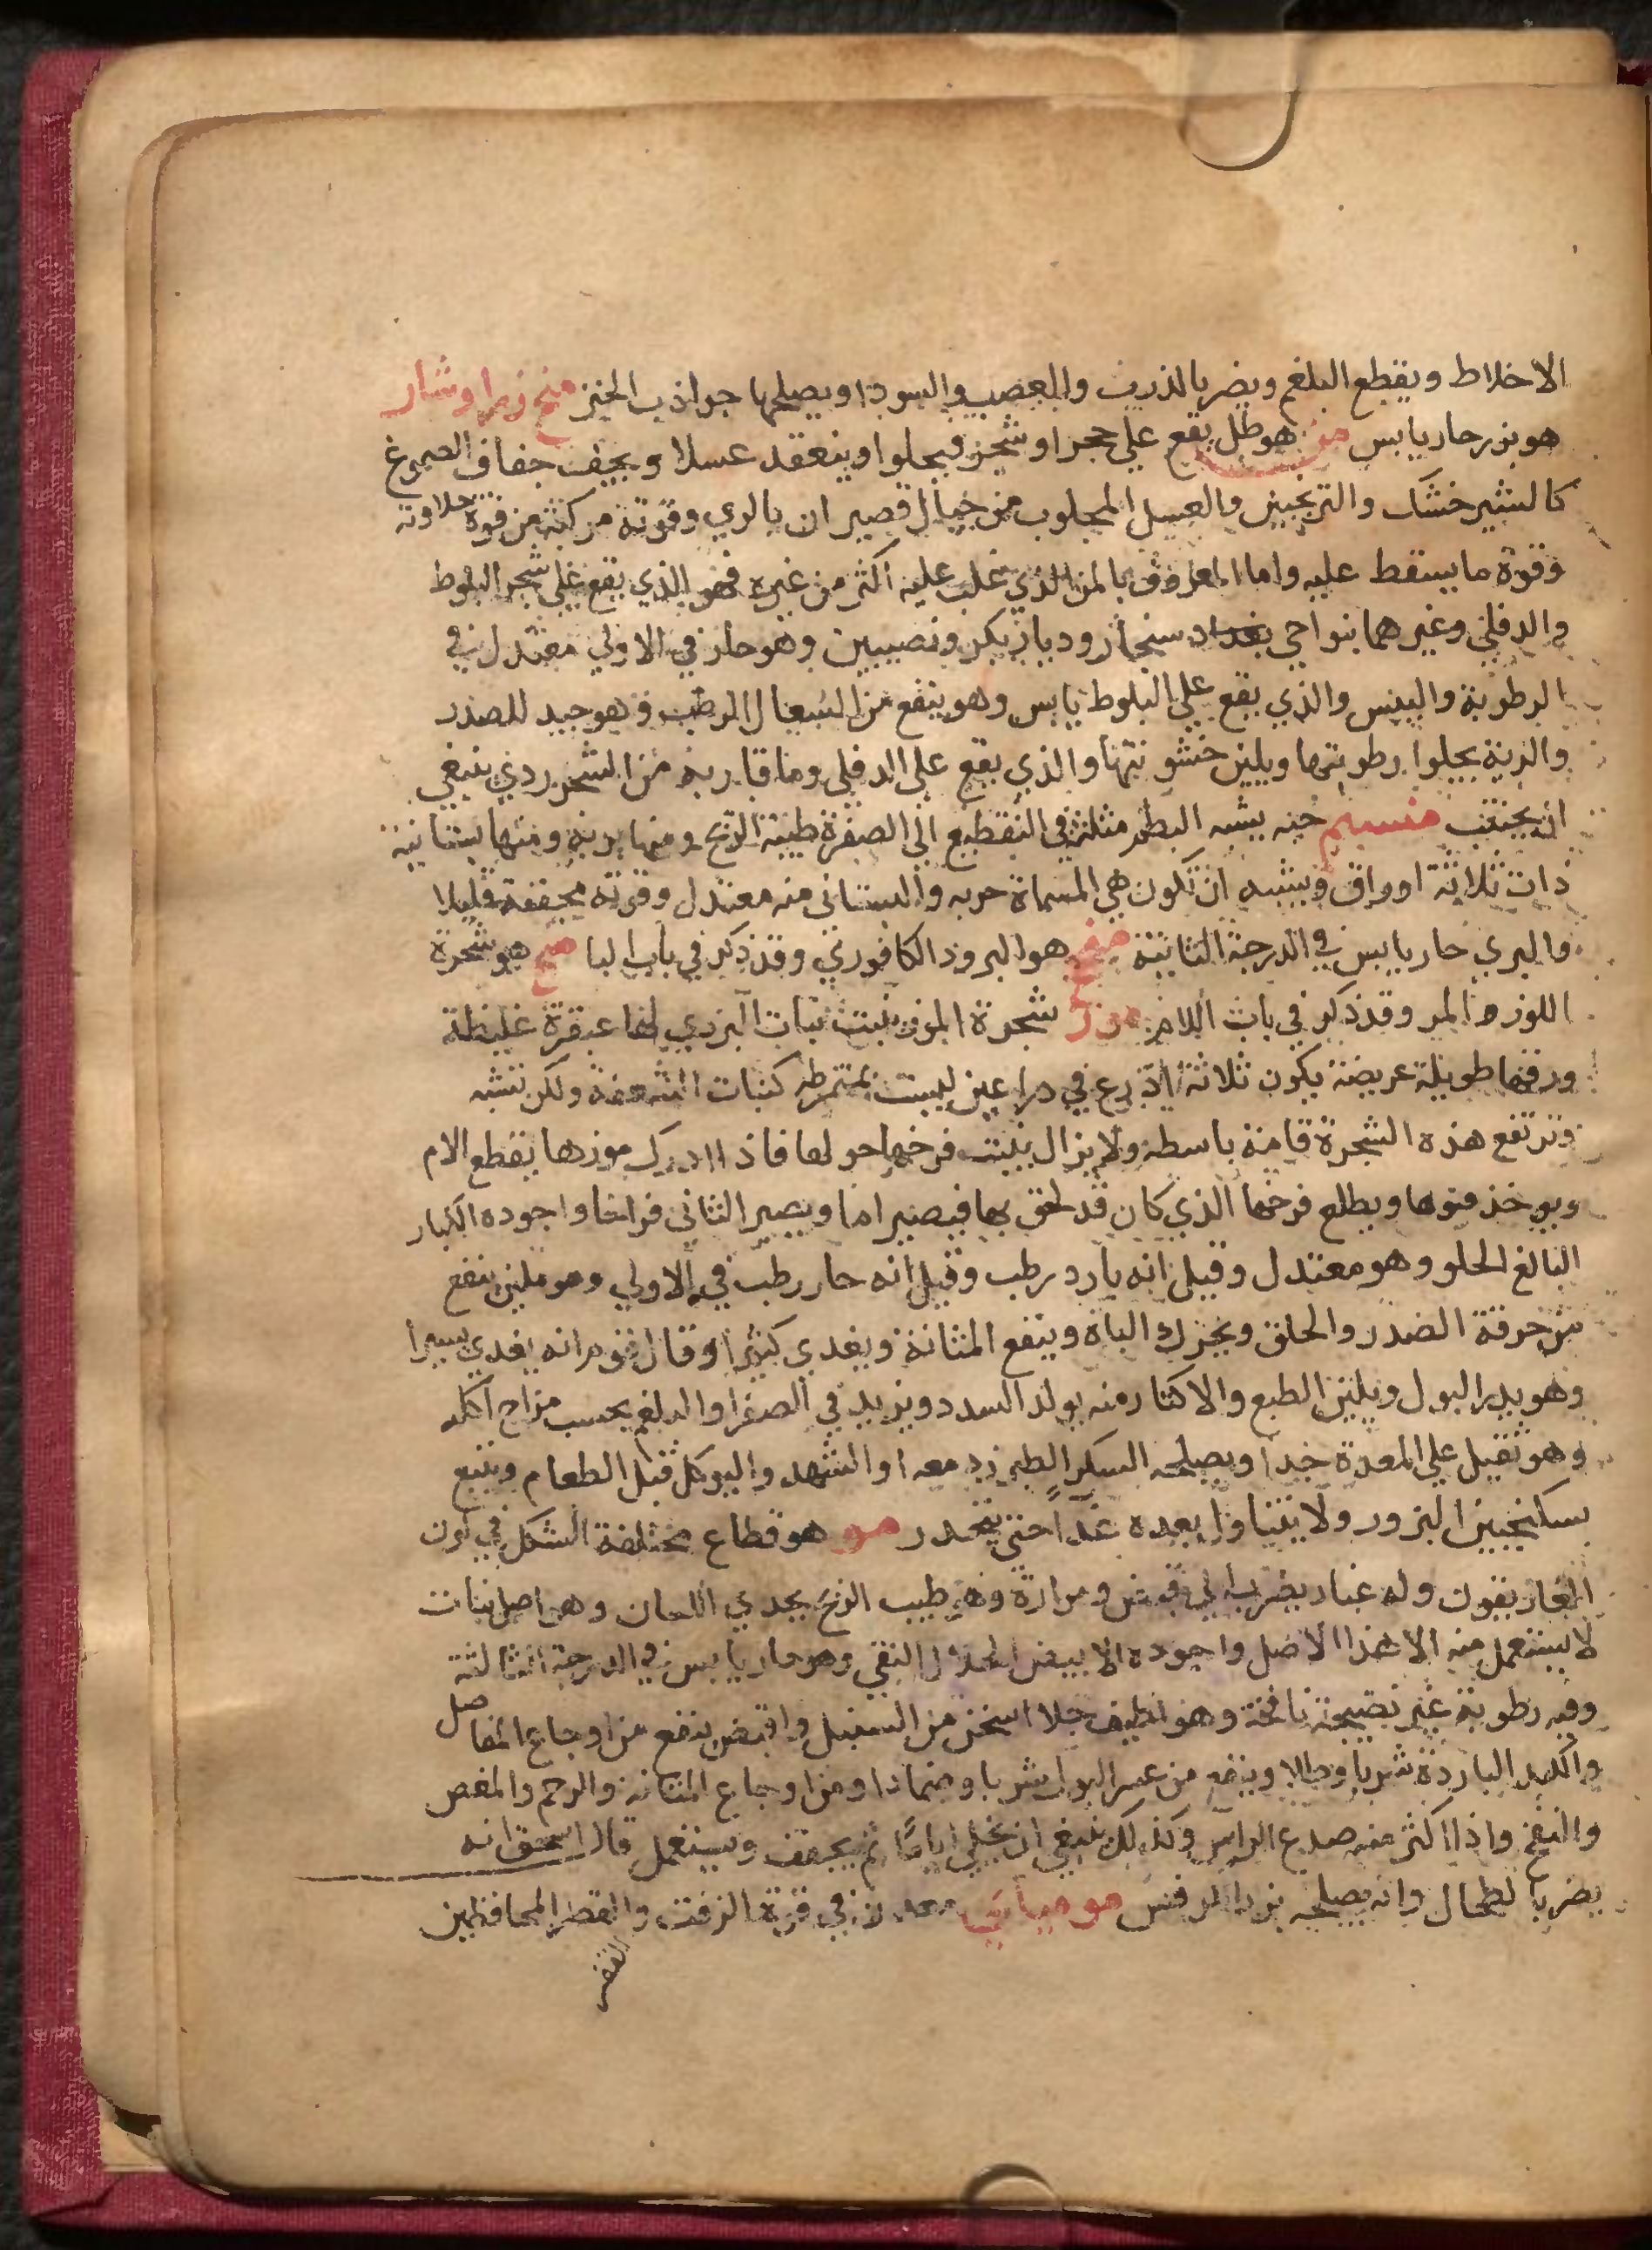 الاخلاط ويقطع البلغم ويضر بالذرب والعصب والسودا ويصلحها جواذب الخبز منج زمراوشار
هو بزر حار يابس من هو طل يقع على حجر او شجر فيحلوا وينعقد عسلا ويجف جفاف الصموغ
كالشيرخشك والترنجبين والعسل المجلوب من جبال قصير ان بالري وقوته مركبة من قوة حلاوته
وقوة ما يسقط عليه واما المعروف بالمن الذي غلب عليه اكثر من غيره فهو الذي يقع على شجر البلوط
والدفلي وغيرهما بنواحي بغداد سنجار وديار بكر ونصيبين وهو حار في الاولي معتدل في
الرطوبة واليبس والذي يقع علي البلوط يابس وهو ينفع من السعال الرطب وهو جيد للصدر
والرية يجلوا رطوبتها ويلين خشونتها والذي يقع علي الدفلي وما قاربه من الشجر ردي ينبغي
ان يجتنب منسيم حبه يشبه البطم مثلثة في التقطيع الي الصفرة طيبة الريح ومنها برية ومنها بستانية
ذات ثلاثة اوراق ويشبه ان تكون هي المسماة حربه والبستاني منه معتدل وقوته مجففة قليلا
والبري حار يابس في الدرجة الثانية هو البرود الكافوري وقد ذكر في باب البا منج هو شجرة
اللوز المر وقد ذكر في باب اللام موز شجرة الموز تنبت نبات البردي لها عبقرة غليظة
ورقها طويلة عريضة يكون ثلاثة اذرع في ذراعين ليست بمنخرطه كنبات السعفة ولكن تشبه
وترتفع هذه الشجرة قامة باسطة ولا يزال ينبت فرخها حولها فاذا ادرك موزها يقطع الام
ويوخذ قنوها ويطلع فرخها الذي كان قد لحق بها فيصير اما ويصير الثاني فراخا واجوده الكبار
البالغ الحلو وهو معتدل وقيل انه بارد رطب وقيل انه حار رطب في الاولي وهو ملين ينفع
من حرقة الصدر والحلق ويحرك الباة وينفع المثانة ويغدي كثيرا وقال قوم انه يغدي يسيرا
وهو يدر البول ويلين الطبع والاكثار منه يولد السدد ويزيد في الصفرا والبلغم بحسب مزاج اكله
وهو ثقيل علي المعدة جدا ويصلحه السكر الطبرزد معه او الشهد واليوكل قبل الطعام ويتبع
بسكنجبين البزور ولا يتناول بعده غذا حتي ينحدر مو هو قطاع مختلفة الشكل في لون
الغاريقون وله غبار يضرب الي قبض ومرارة وهو طيب الريح يحدي اللسان وهو اصل نبات
لا يستعمل منه الا هذا الاصل واجوده الابيض النقي وهو حار يابس في الدرجة الثالثة
وفيه رطوبة غير نضيجة نافخة وهو لطيف جلا اسخن من السنبل واقبض ينفع من اوجاع المفاصل
والكبد الباردة شربا وطلا وينفع من عسر البول شربا وضمادا ومن اوجاع المثانة والرحم والمغص
والنفخ واذا اكثر منه صدع الراس وكذلك ينبغي ان يخلي اياما ثم يجفف ويستعمل قال اسحق انه
يضر بالطحال وانه يصلحه بزر الكرفس موميائي معدن في قوة الزفت والقطر المحافظين
القفر